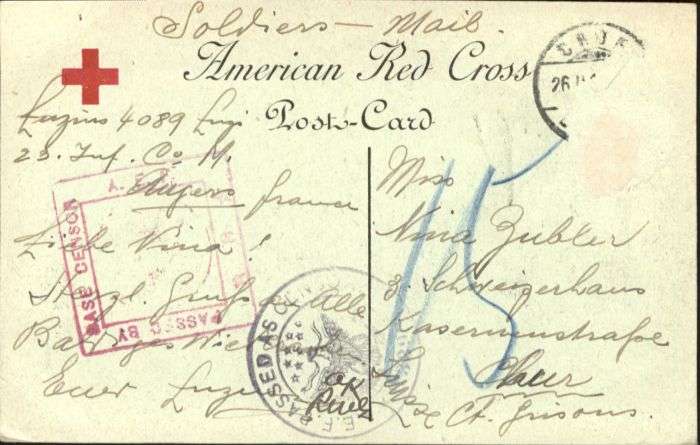 Soldiers – Mail.
American Red Cross
Post-Card
Luzius 4089 Luzi
23. Inf. Co M.
Angers france
Liebe Nina!
Herzl. Gruß an Alle
Baldiges Wieder
Euer Luzi
OK
Miss
Nina Zubler
z. Schweizerhaus
Kasernenstraße
Chur
Ct. Grisons.
15
CHUR
26
A.
BASE CENSOR
PASSED BY
A.E.F. PASSED AS